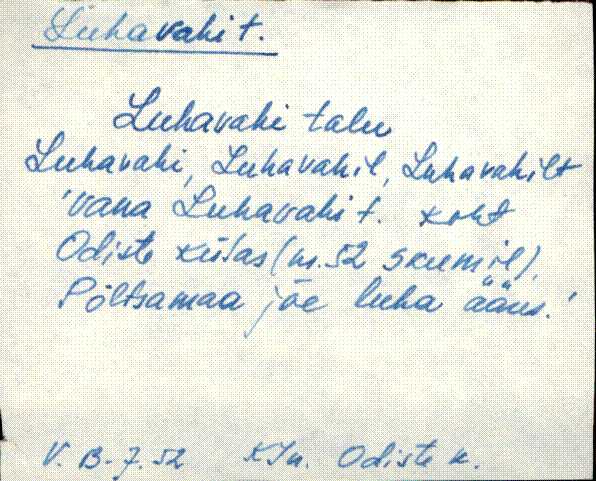 Luhavahi t.
Luhavahi talu
Luhavahi, Luhavahil, Luhavahilt
'vana Luhavahi t. koht
Odiste külas (nr. 52 skeemil),
Põltsamaa jõe luha ääres.'
V. B-7.52 KJn. Odiste k.